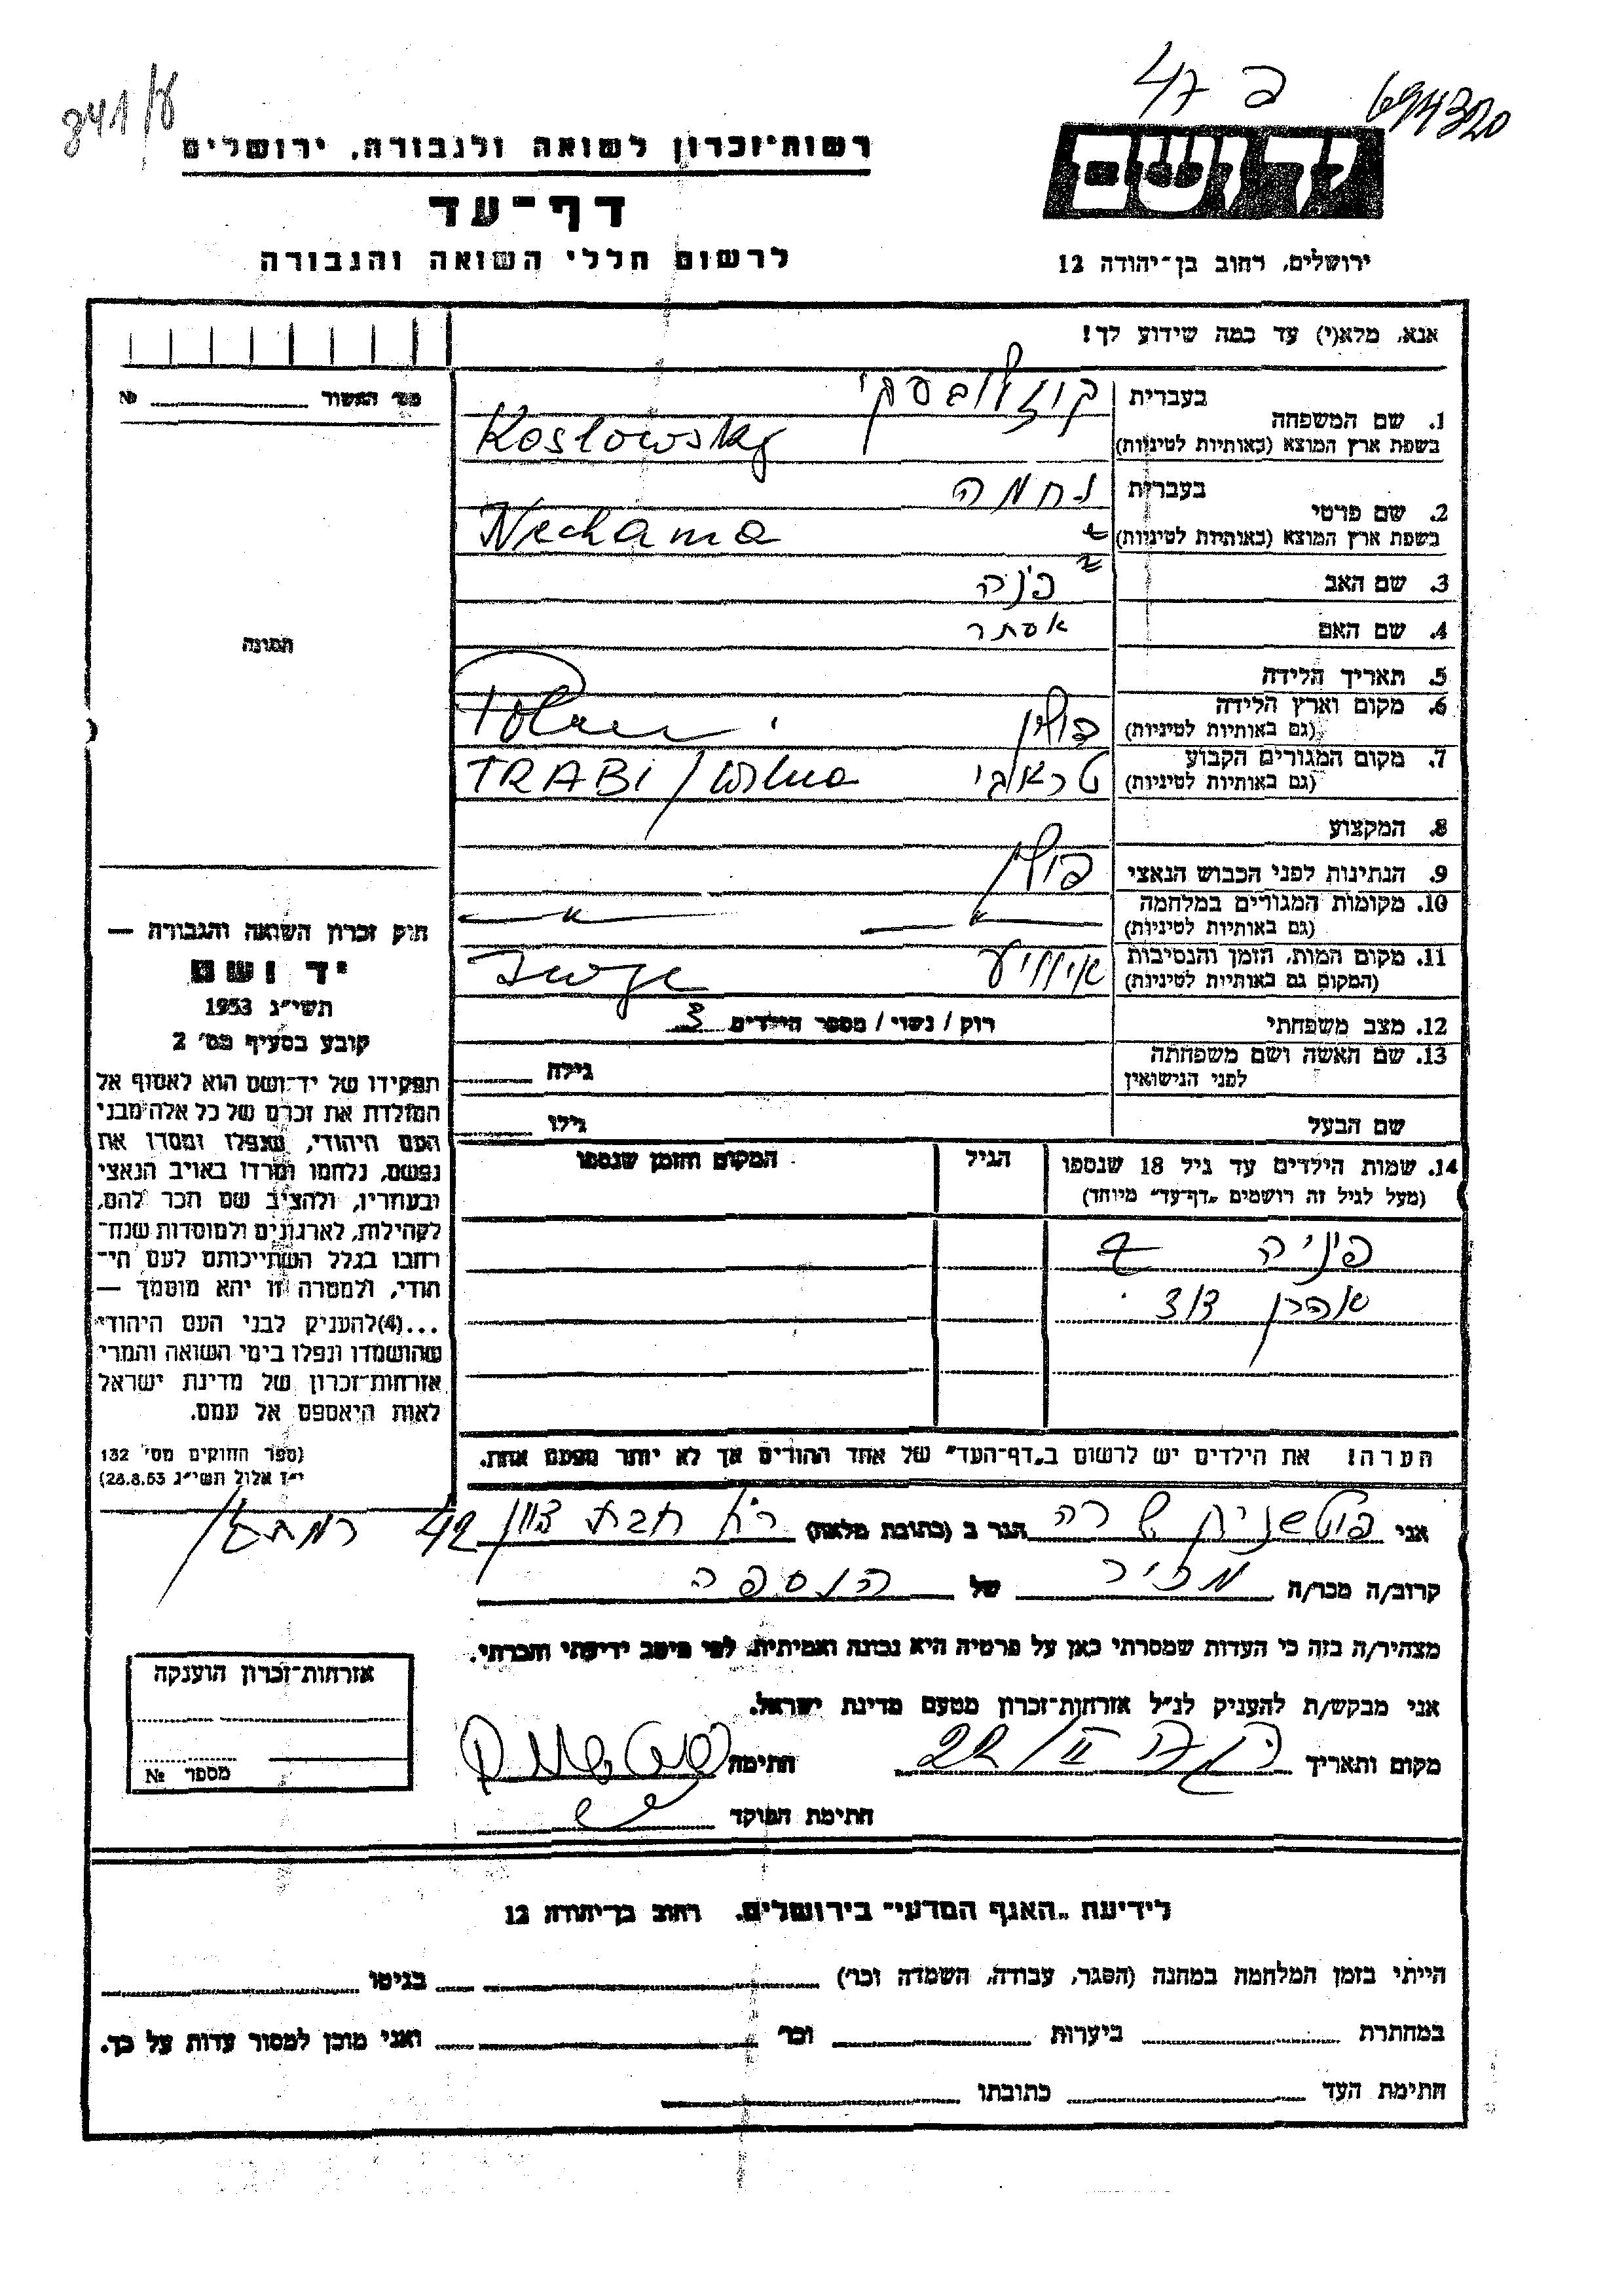 841/ע
ב 47
694320
רשות־זכרון לשואה ולגבורה, ירושלים
דף־עד
לרשום חללי השואה והגבורה
יד ושם
ירושלים, רחוב בן־יהודה 12
אנא, מלא(י) עד כמה שידוע לך!
מס' האשור № 
1. שם המשפחה בעברית קוזלובסקי
בשפת ארץ המוצא (באותיות לטיניות) Koslowsky
2. שם פרטי בעברית נחמה
בשפת ארץ המוצא (באותיות לטיניות) Nechama
3. שם האב פניה
4. שם האם אסתר
5. תאריך הלידה
6. מקום וארץ הלידה פולין
(גם באותיות לטיניות)
7. מקום המגורים הקבוע טראבי TRABI /
(גם באותיות לטיניות)
8. המקצוע
9. הנתינות לפני הכבוש הנאצי פולין
10. מקומות המגורים במלחמה
(גם באותיות לטיניות)
11. מקום המות, הזמן והנסיבות
(המקום גם באותיות לטיניות)
12. מצב משפחתי רוק / נשוי / מספר הילדים 3
13. שם האשה ושם משפחתה גילה
לפני הנישואין
שם הבעל גילו
14. שמות הילדים עד גיל 18 שנספו הגיל המקום והזמן שנספו
(מעל לגיל זה רושמים „דף־עד" מיוחד)
פיניה
אהרן
הערה! את הילדים יש לרשום ב„דף־העד" של אחד ההורים אך לא יותר מפעם אחת.
תמונה
חוק זכרון השואה והגבורה —
יד ושם
תשי"ג 1953
קובע בסעיף מס' 2
תפקידו של יד־ושם הוא לאסוף אל
המולדת את זכרם של כל אלה מבני
העם היהודי, שנפלו ומסרו את
נפשם, נלחמו ומרדו באויב הנאצי
ובעוזריו, ולהציב שם וזכר להם,
לקהילות, לארגונים ולמוסדות שנח־
רבו בגלל השתייכותם לעם הי־
הודי, ולמטרה זו יהא מוסמך —
...(4)להעניק לבני העם היהודי
שהושמדו ונפלו בימי השואה והמרי
אזרחות־זכרון של מדינת ישראל
לאות היאספם אל עמם.
(ספר החוקים מס' 132
י"ז אלול תשי"ג 28.8.53)
אני שרה הגר ב (כתובת מלאה) חבת ציון 42
קרוב/ה מכר/ה מכיר של הנספה
מצהיר/ה בזה כי העדות שמסרתי כאן על פרטיה היא נכונה ואמיתית, לפי מיטב ידיעתי והכרתי.
אני מבקש/ת להעניק לנ"ל אזרחות־זכרון מטעם מדינת ישראל.
מקום ותאריך חתימה
חתימת הפוקד
אזרחות־זכרון הוענקה
מספר №
לידיעת „האגף המדעי" בירושלים, רחוב בן־יהודה 12
הייתי בזמן המלחמה במחנה (הסגר, עבודה, השמדה וכר') בגיטו
במחתרת ביערות וכר' ואני מוכן למסור עדות על כך.
חתימת העד כתובתו